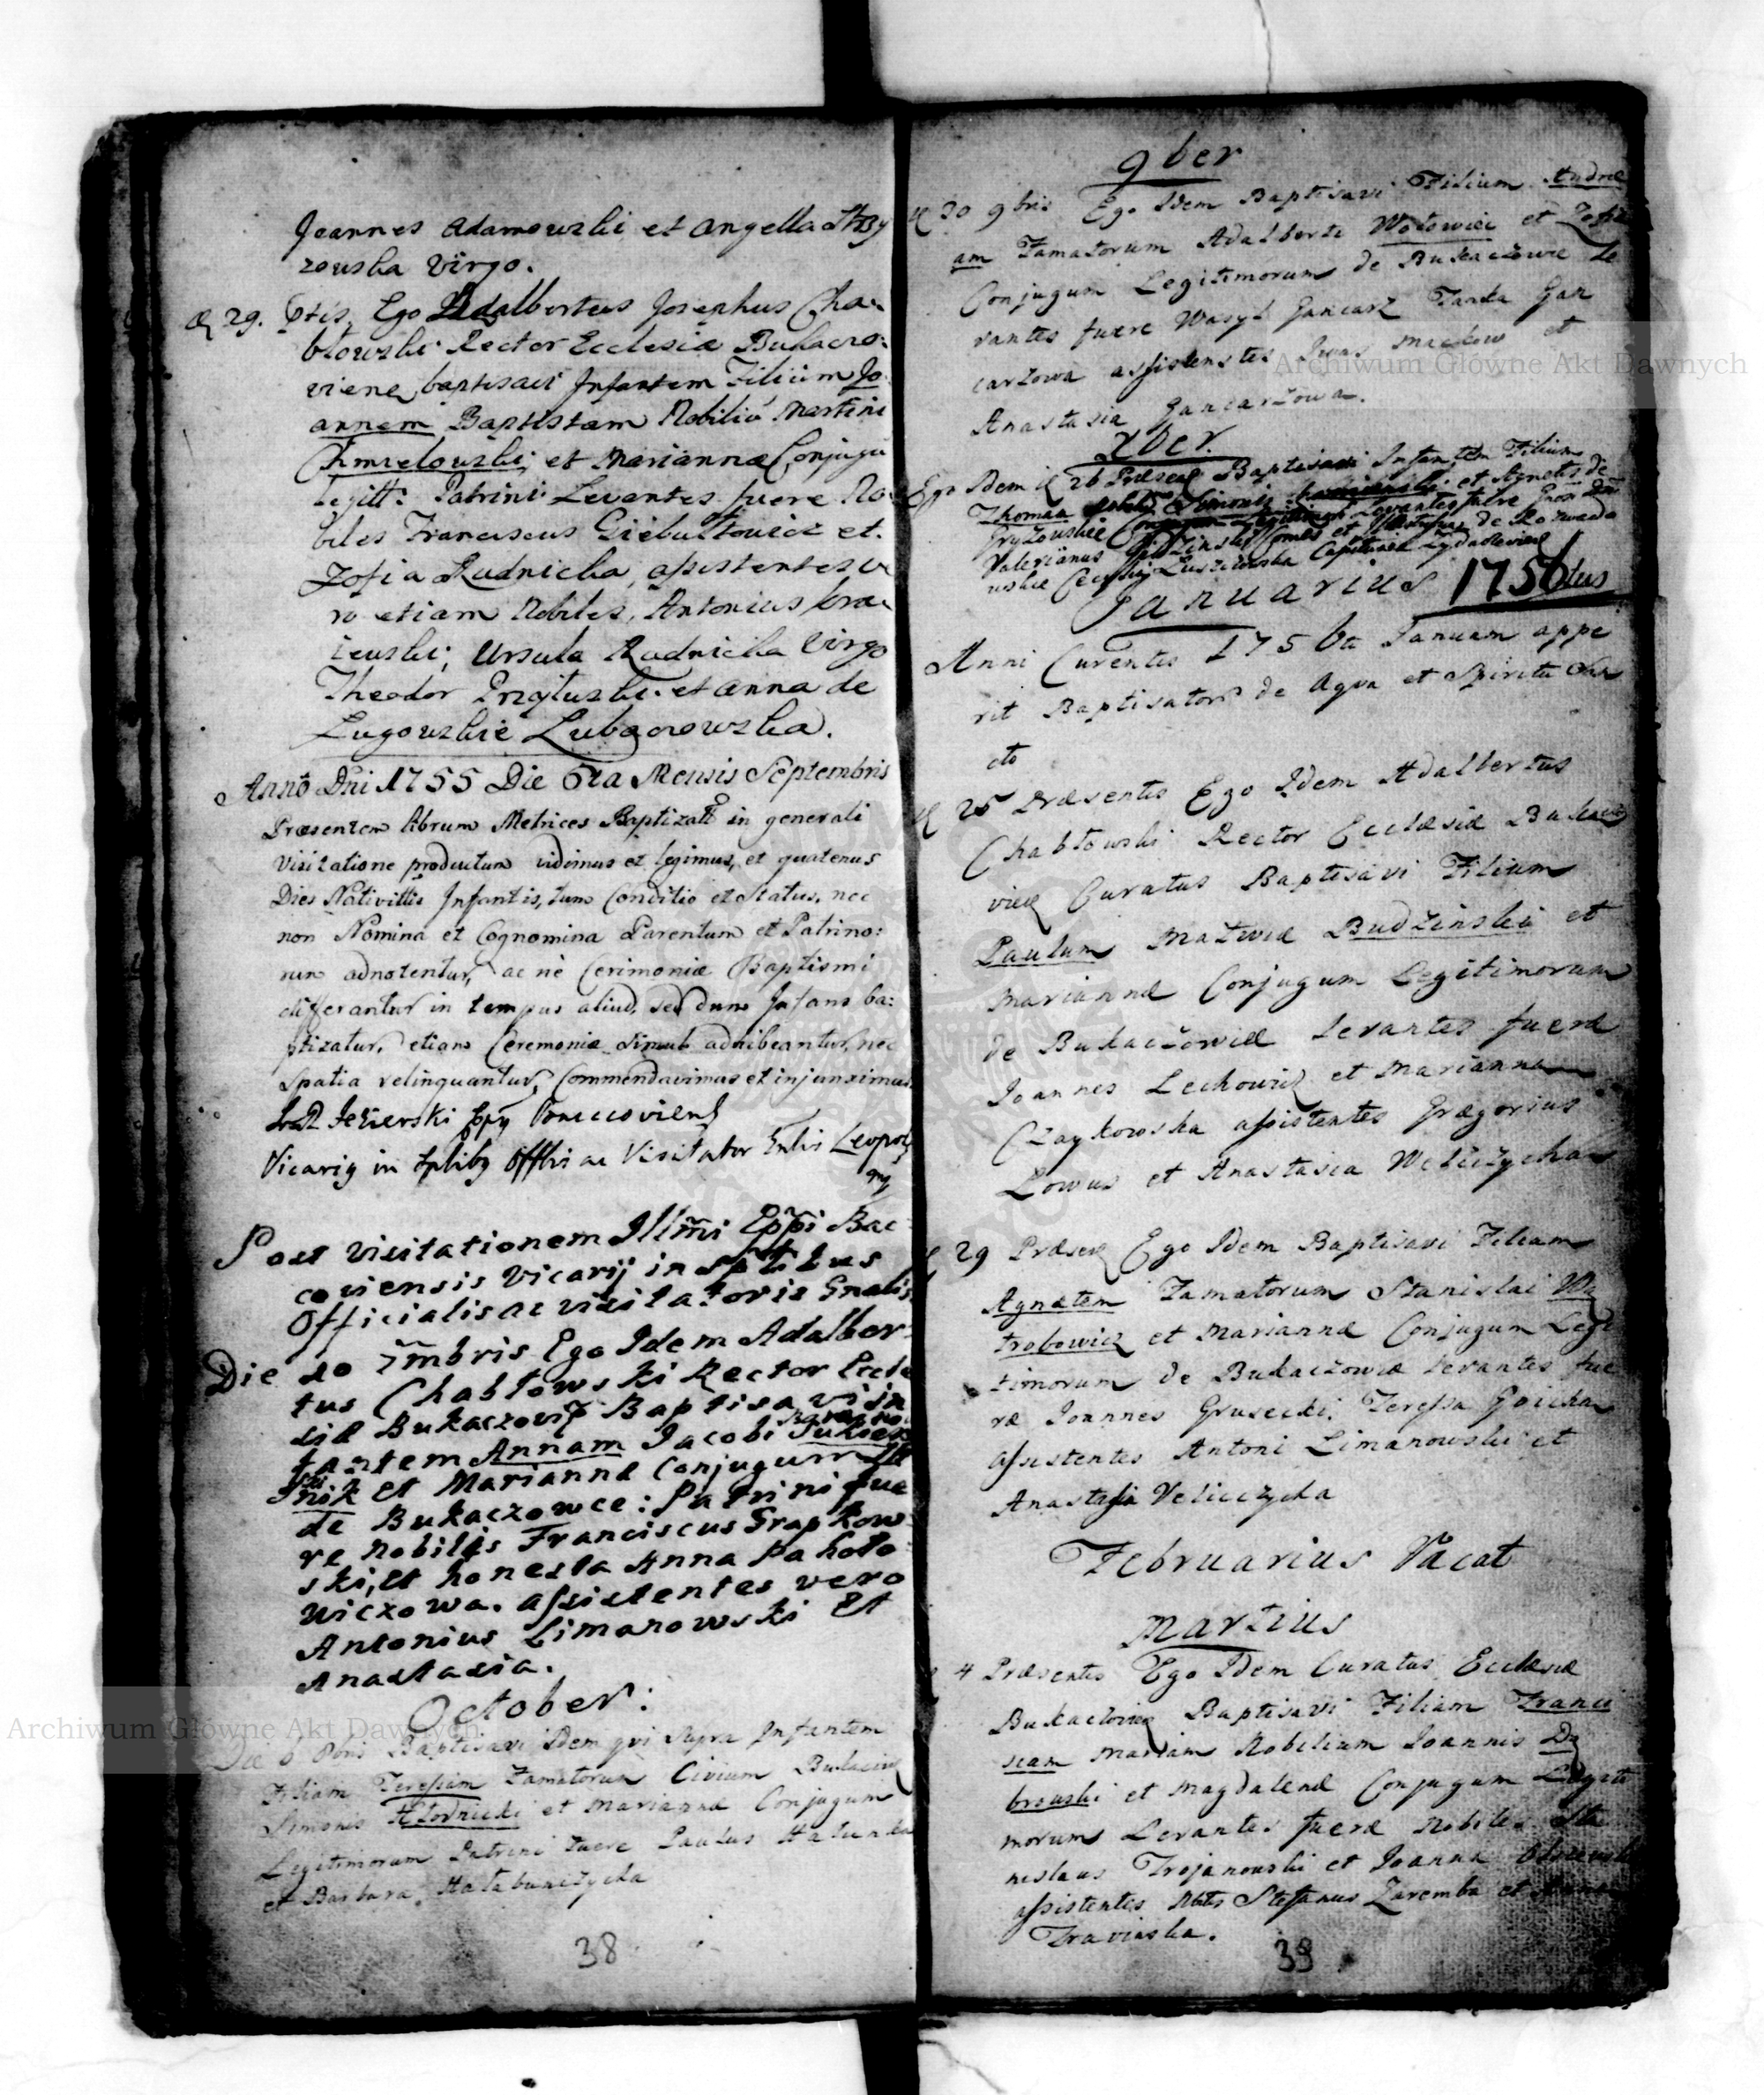 Joannes Adamowski et Angella Strzy
zowska Virgo.
29. Ego Adalbertus Josephus Cha-
błowski Rector Ecclesiæ Bukaczo:
viens baptisavi Infantem Filium Jo
annem Baptistam Nobiliu Martini
Chmielowski, et Mariannæ Conjugu
legitt: Patrini Levantes fuere No
biles Franciscus Giebułtowicz et
Zofia Rudnicka, assistentes ve
ro etiam Nobiles, Antonius
Ursula Rudnicka Virgo
Theodor et Anna de
Ługowskie Lubaczowska.
Anno Dni 1755 Die 6ta Mensis Septembris
Præsentem librum Metrices Baptizator in generali
Visitatione productum vidimus et legimus, et quatenus
Dies Nativittis Infantis, tum Conditio et Status, nec
non Nomina et Cognomina Parentum et Patrino:
rum adnotentur, ac ne Cerimoniæ Baptismi
differantur in tempus aliud, sed dum Infans ba:
ptizatur, etiam Ceremoniæ simul adhibeantur, nec
spatia relinquantur, Commendavimus et injunximus
Jezierski
Vicarig in Offlis ac Visitator Gnlis Leopol
mp
Post visitationem Illmi Eppi Bac
coviensis Vicarij in sptlibus
Officialis ac visitatoris Gnalis
Die 10 7mbris Ego Idem Adalber
tus Chabłowski Rector Eccle
siæ Bukaczovie Baptisavi in
fantem Annam Jacobi
nik et Mariannæ Conjugum
de Bukaczowce: Patrini fue
re Nobilis Franciscus Grapkow
ski, et honesta Anna Pahoto
wiczowa. assistentes vero
Antonius Limanowski et
Anastasia.
October:
Die 6 8bris Baptisavi Idem qvi supra Infantem
Filiam Teressam Famatorum Civium
Simonis Hłodnicki et Mariannæ Conjugum
Legitimorum Patrini fuere Paulus
et Barbara
38
9ber
20 9bris Ego Idem Baptisavi Filium Andræ
am Famatorum Adalberti Wołowicz et Zofiæ
Conjugum Legitimorum de Bukaczowce Le
vantes fuere Wasyl Gancarz Gan
carzowa assistentes Iwas et
Anastasia Gancarzowa.
Xber.
Ego Idem 26 Præsen Baptisavi Infantem Filium
Thomam Simonis et Agnetis de
Gryzowskie Conjugum Legitimor Levantes fuere
Valerianus
Januarius 1756tus
Anni Curentis 1756ta Januam appe
rit Baptisator de Aqva et Spiritu San
cto
25 Præsentis Ego Idem Adalbertus
Chabłowski Rector Ecclæsiæ Bukaczo
vien Curatus Baptisavi Filium
Paulum Mathiæ Budzinski et
Mariannæ Conjugum Legitimorum
de Bukaczowiæ Levantes fueræ
Joannes Lechowicz et Marianna
Czaykowska assistentes Grægorius
Łowus et Anastasia Weliczycka
29 Præsen Ego Idem Baptisavi Filiam
Agnætem Famatorum Stanislai Wa
trobowicz et Mariannæ Conjugum Legi
timorum de Bukaczowiæ Levantes fue
ræ Joannes Grusecki, Teressa
assistentes Antoni Limanowski et
Anastasia Veliczycka
Februarius Vacat
Martius
4 Præsentis Ego Idem Curatus Ecclæsiæ
Baptisavi Filiam Franci
scam Mariam Nobilium Joannis Dą
browski et Magdalenæ Conjugum Legiti
morum Levantes fueræ Nobiles Sta
nislaus Trojanowski et Joanna
assistentes Nbles Stefanus Zaremba et
39
Archiwum Główne Akt Dawnych
Archiwum Główne Akt Dawnych